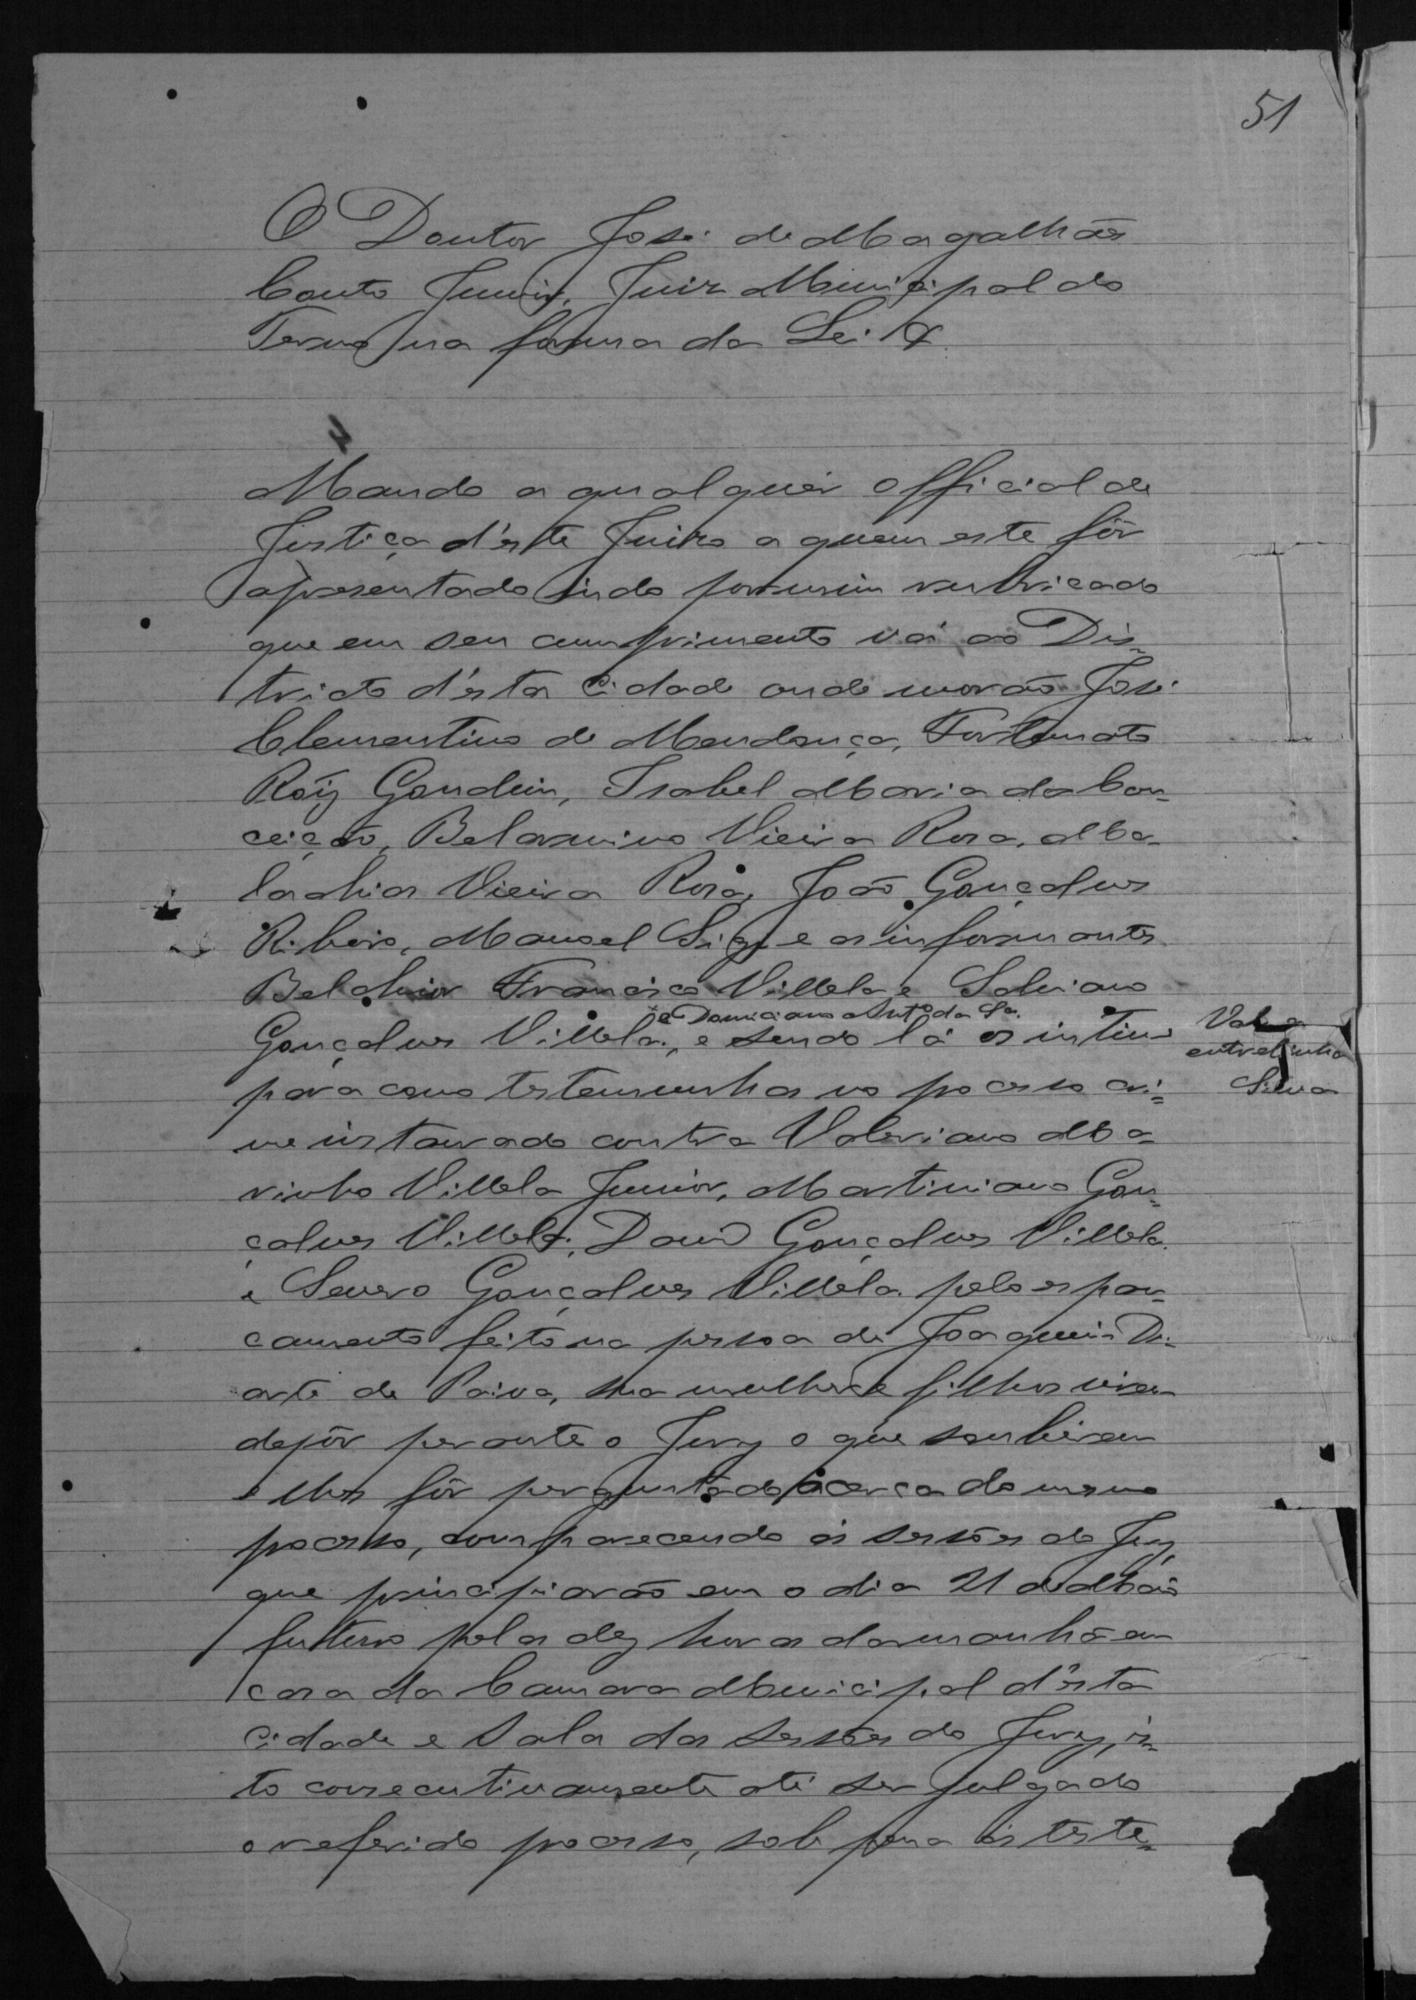 51
O Doutor José de Magalhães
Couto Junior, Juiz Municipal do
Termo na forma da Lei &
Mando a qualquér official de
Justiça d'éste Juizo a quem este fôr
apresentado indo por mim rubricado
que em seu cumprimento vá ao Dis=
tricto d'ésta Cidade onde morão José
Clementino de Mendonça, Fortunato
Gondim, Isabel Maria da Con=
ceição, Belarmino Vieira Rosa, Ma=
lachias Vieira Rosa, João Gonçalves
Ribeiro, Manoel e os informantes
Belchior Francisco Villela e Salviano
e Domiciano Antº da Sª.
Gonçalves Villela, e sendo lá os intime
Vale a
entrelinha
Silva
para como testemunhas no pocesso cri=
me instaurado contra Valeriano Ma=
rinho Villela Junior, Martiniano Gon=
çalves Villela, David Gonçalves Villela
e Severo Gonçalves Villela pelo espan=
camento feito na pessoa de Joaquim Du=
arte de Paiva, sua mulher e filhos virem
depôr perante o Jury o que souberem
e lhes fôr perguntado ácerca do mesmo
pocesso, comparecendo ás sessões do Jury
que principiarão em o dia 21 de Maio
futuro pelas dez horas da manhã em
casa da Camara Municipal d'ésta
Cidade e Sala das sessões do Jury, is=
to consecutivamente até ser julgado
o referido pocesso, sob pena ás teste=